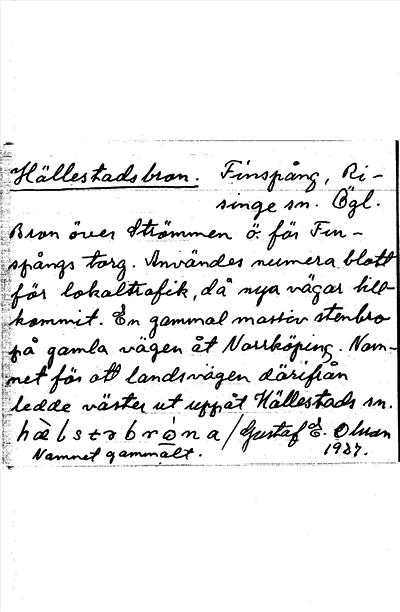 Hällestadsbron. Finspång, Ri-
singe sn. Ögl.
Bron över Strömmen ö. för Fin-
spångs torg. Användes numera blott
för lokaltrafik, då nya vägar till-
kommit. En gammal massiv stenbro
på gamla vägen åt Norrköping. Nam-
net för att landsvägen därifrån
ledde väster ut uppåt Hällestads sn.
/ Gustaf E. Olsson
Namnet gammalt. 1937.